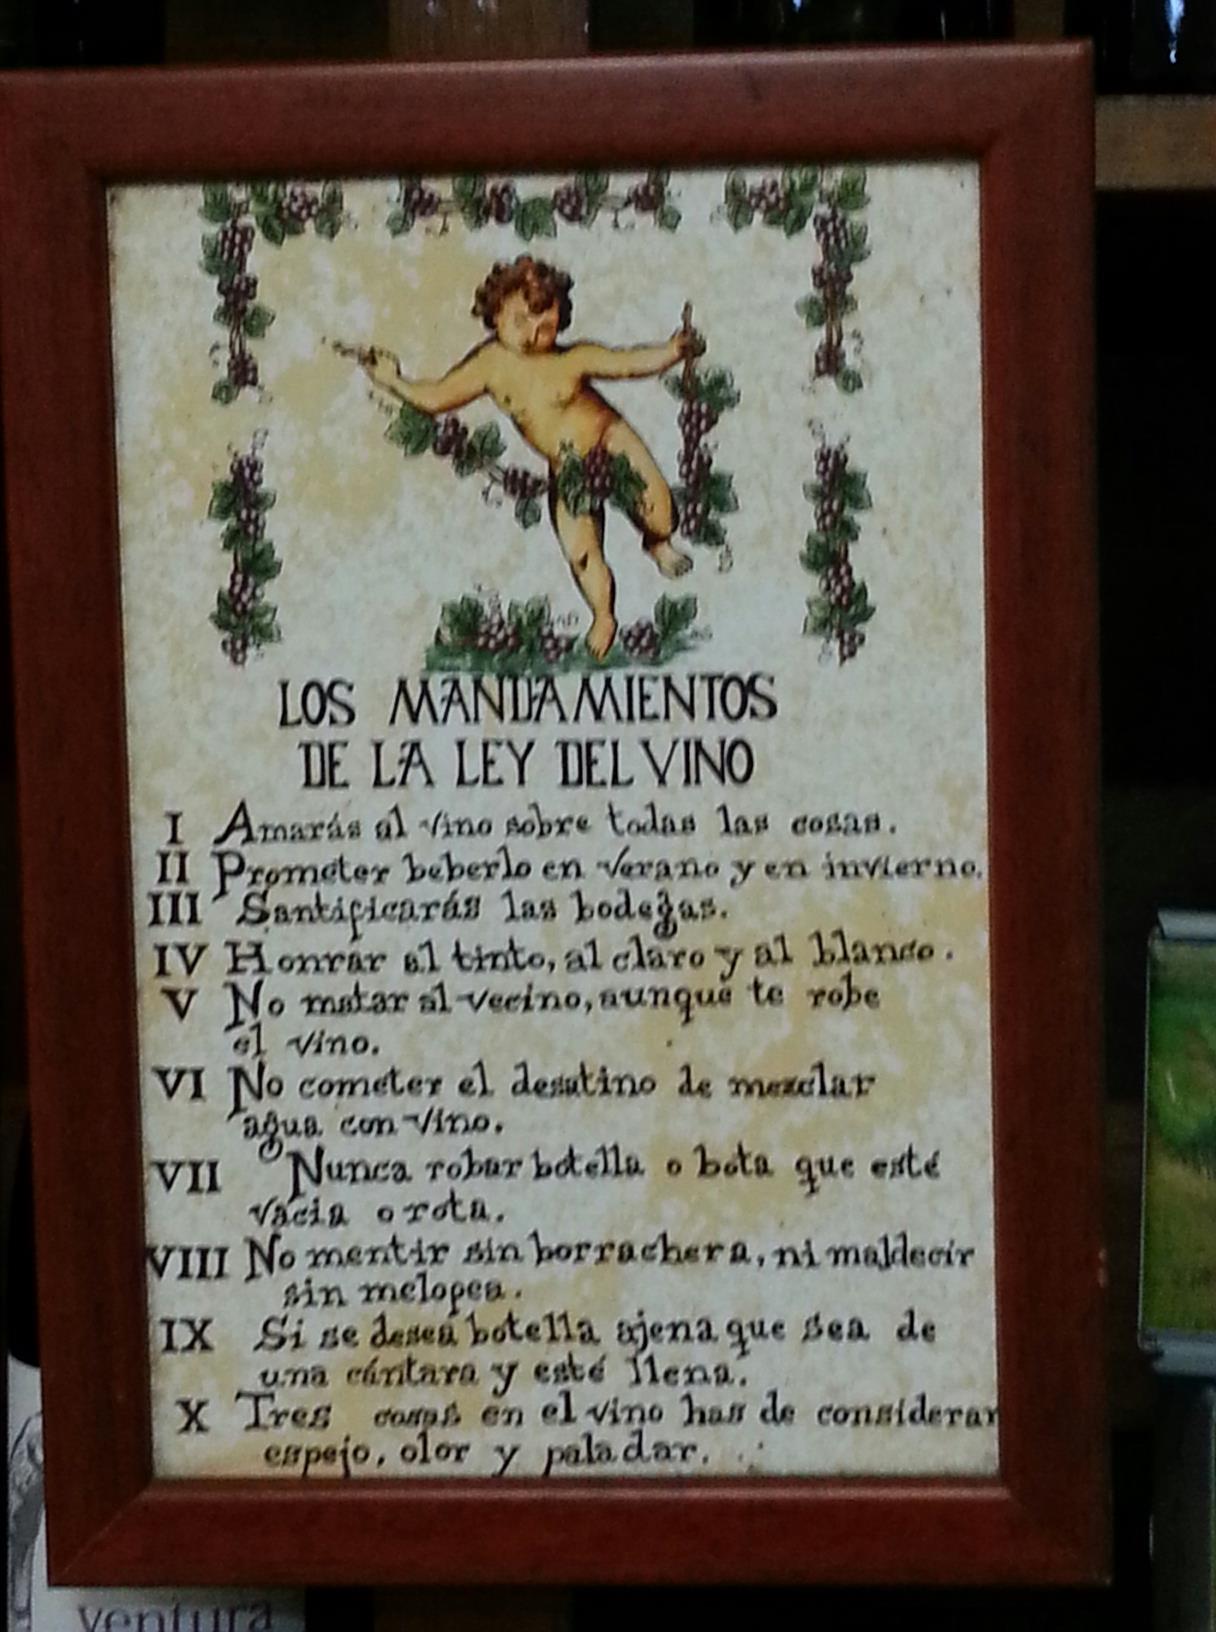 LOS MANDAMIENTOS
DE LA LEY DEL VINO
I Amarás al vino sobre todas las cosas.
II Prometer beberlo en verano y en invierno.
III Santificarás las bodegas.
IV Honrar al tinto, al claro y al blanco.
V No matar al vecino, aunque te robe
el vino.
VI No cometer el desatino de mezclar
agua con vino.
VII Nunca robar botella o bota que esté
vacia o rota.
VIII No mentir sin borrachera, ni maldecir
sin melopea.
IX Si se desea botella ajena que sea de
una cántara y esté llena.
X Tres cosas en el vino has de considerar
espejo, olor y paladar.
ventura